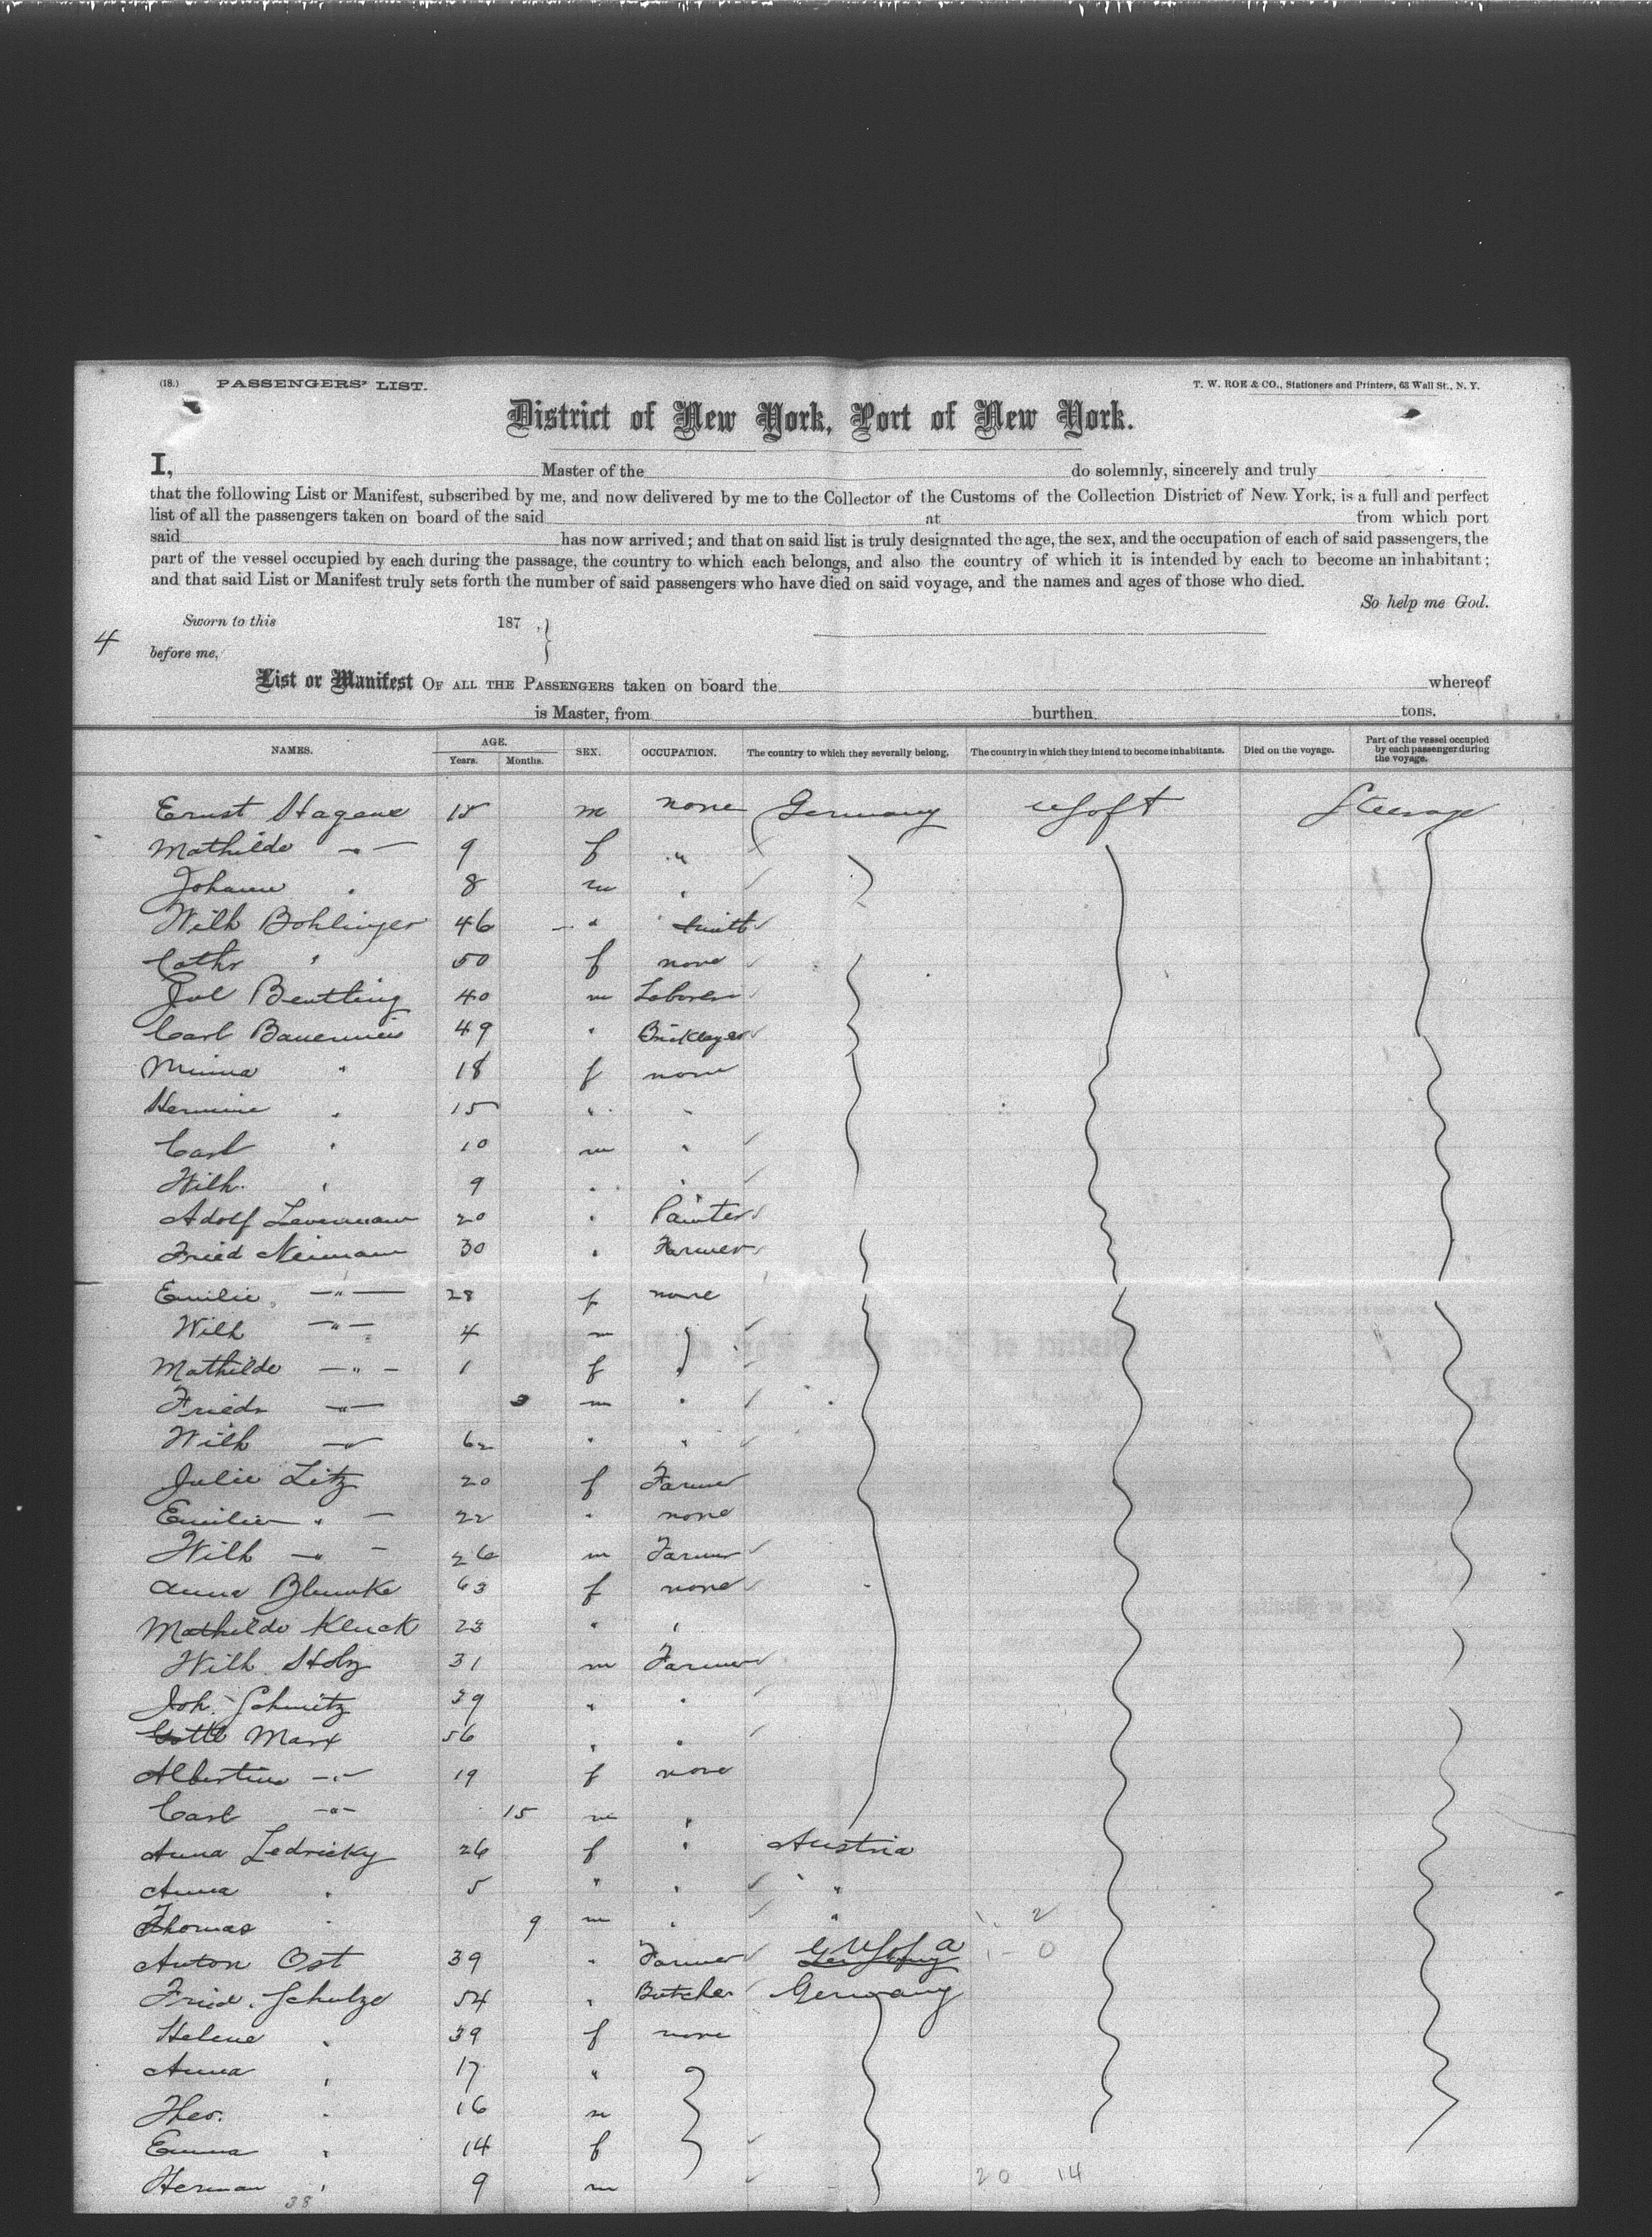 (18.) PASSENGERS' LIST. T. W. ROE & CO., Stationers and Printers, 63 Wall St., N. Y.
District of New York, Port of New York.
I, Master of the do solemnly, sincerely and truly
that the following List or Manifest, subscribed by me, and now delivered by me to the Collector of the Customs of the Collection District of New York, is a full and perfect
list of all the passengers taken on board of the said at from which port
said has now arrived; and that on said list is truly designated the age, the sex, and the occupation of each of said passengers, the
part of the vessel occupied by each during the passage, the country to which each belongs, and also the country of which it is intended by each to become an inhabitant;
and that said List or Manifest truly sets forth the number of said passengers who have died on said voyage, and the names and ages of those who died.
So help me God.
Sworn to this 187 .}
4
before me,
List or Manifest OF ALL THE PASSENGERS taken on board the whereof
is Master, from burthen tons.
NAMES. AGE. Years. Months. SEX. OCCUPATION. The country to which they severally belong. The country in which they intend to become inhabitants. Died on the voyage. Part of the vessel occupied by each passenger during the voyage.
Ernst Hagene 15 m none Germany Steerage
Mathilde -"- 9 f "
Johann " 8 m "
Wilh Bohlinger 46 " Smith
Cathr " 50 f none
Jul Bentling 40 m Laborer
Carl 49 " Bricklayer
Minna " 18 f none
Hermine " 15 " "
Carl " 10 m "
Wilh. " 9 " "
Adolf Levermann 20 " Painter
Fried Neimann 30 " Farmer
Emilie -"- 28 f none
Wilh -"- 4 m
Mathilde -"- 1 f "
Friedr -"- 3 m "
Wilh -"- 62 " "
Julie Litz 20 f Farmer
Emilie " 22 " none
Wilh -"- 26 m Farmer
Anna Blumke 63 f none
Mathilde Kluck 23 " "
Wilh. Stolz 31 m Farmer
Joh. Schmitz 39 " "
Gottl Marx 56 " "
Albertine -"- 19 f none
Carl -"- 15 m "
Anna Ledricky 26 f " Austria
Anna " 5 " " "
Thomas " 9 m " " 2
Anton Ost 39 " Farmer U S of a - 0
Fried. Schulze 54 " Butcher Germany
Helene " 39 f none
Anna " 17 "
Theo. " 16 m
Emma " 14 f
Herman " 9 m 20 14
38